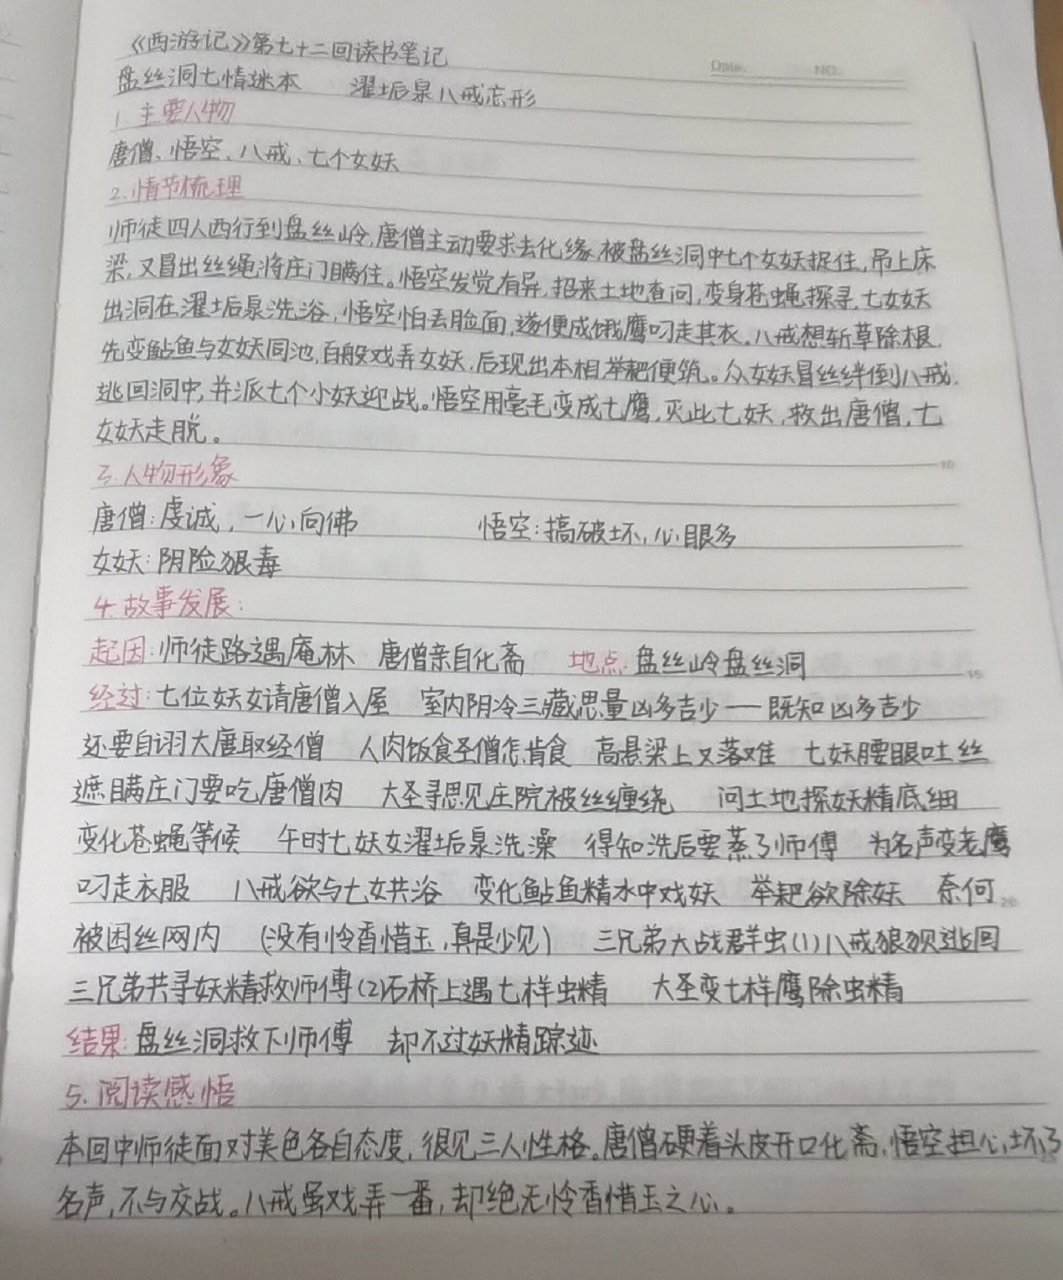 《西游记》第七十二回读书笔记
Date. NO.
盘丝洞七情迷本 濯垢泉八戒忘形
1. 主要人物
唐僧、悟空、八戒、七个女妖
2. 情节梳理
师徒四人西行到盘丝岭,唐僧主动要求去化缘,被盘丝洞中七个女妖捉住,吊上床
梁,又冒出丝绳,将庄门瞒住。悟空发觉有异,招来土地查问,变身苍蝇探寻,七女妖
出洞在濯垢泉洗浴,悟空怕丢脸面,遂便成饿鹰叼走其衣。八戒想斩草除根,
先变鲇鱼与女妖同池,百般戏弄女妖,后现出本相,举耙便筑。众女妖冒丝绊倒八戒,
逃回洞中,并派七个小妖迎战。悟空用毫毛变成七鹰,灭此七妖,救出唐僧,七
女妖走脱。
10
3. 人物形象
唐僧:虔诚,一心向佛 悟空:搞破坏,心眼多
女妖:阴险狠毒
4. 故事发展:
起因:师徒路遇庵林 唐僧亲自化斋 地点:盘丝岭盘丝洞
15
经过:七位妖女请唐僧入屋 室内阴冷三藏思量凶多吉少——既知凶多吉少
还要自诩大唐取经僧 人肉饭食圣僧怎肯食 高悬梁上又落难 七妖腰眼吐丝
遮瞒庄门要吃唐僧肉 大圣寻思见庄院被丝缠绕 问土地探妖精底细
变化苍蝇等候 午时七妖女濯垢泉洗澡 得知洗后要蒸了师傅 为名声变老鹰
叼走衣服 八戒欲与七女共浴 变化鲇鱼精水中戏妖 举耙欲除妖 奈何
20
被困丝网内 (没有怜香惜玉,真是少见) 三兄弟大战群虫(1)八戒狼狈逃回
三兄弟共寻妖精救师傅(2)石桥上遇七样虫精 大圣变七样鹰除虫精
结果:盘丝洞救下师傅 却不过妖精踪迹
5. 阅读感悟
本回中师徒面对美色各自态度,很见三人性格。唐僧硬着头皮开口化斋,悟空担心坏了
名声,不与交战。八戒虽戏弄一番,却绝无怜香惜玉之心。